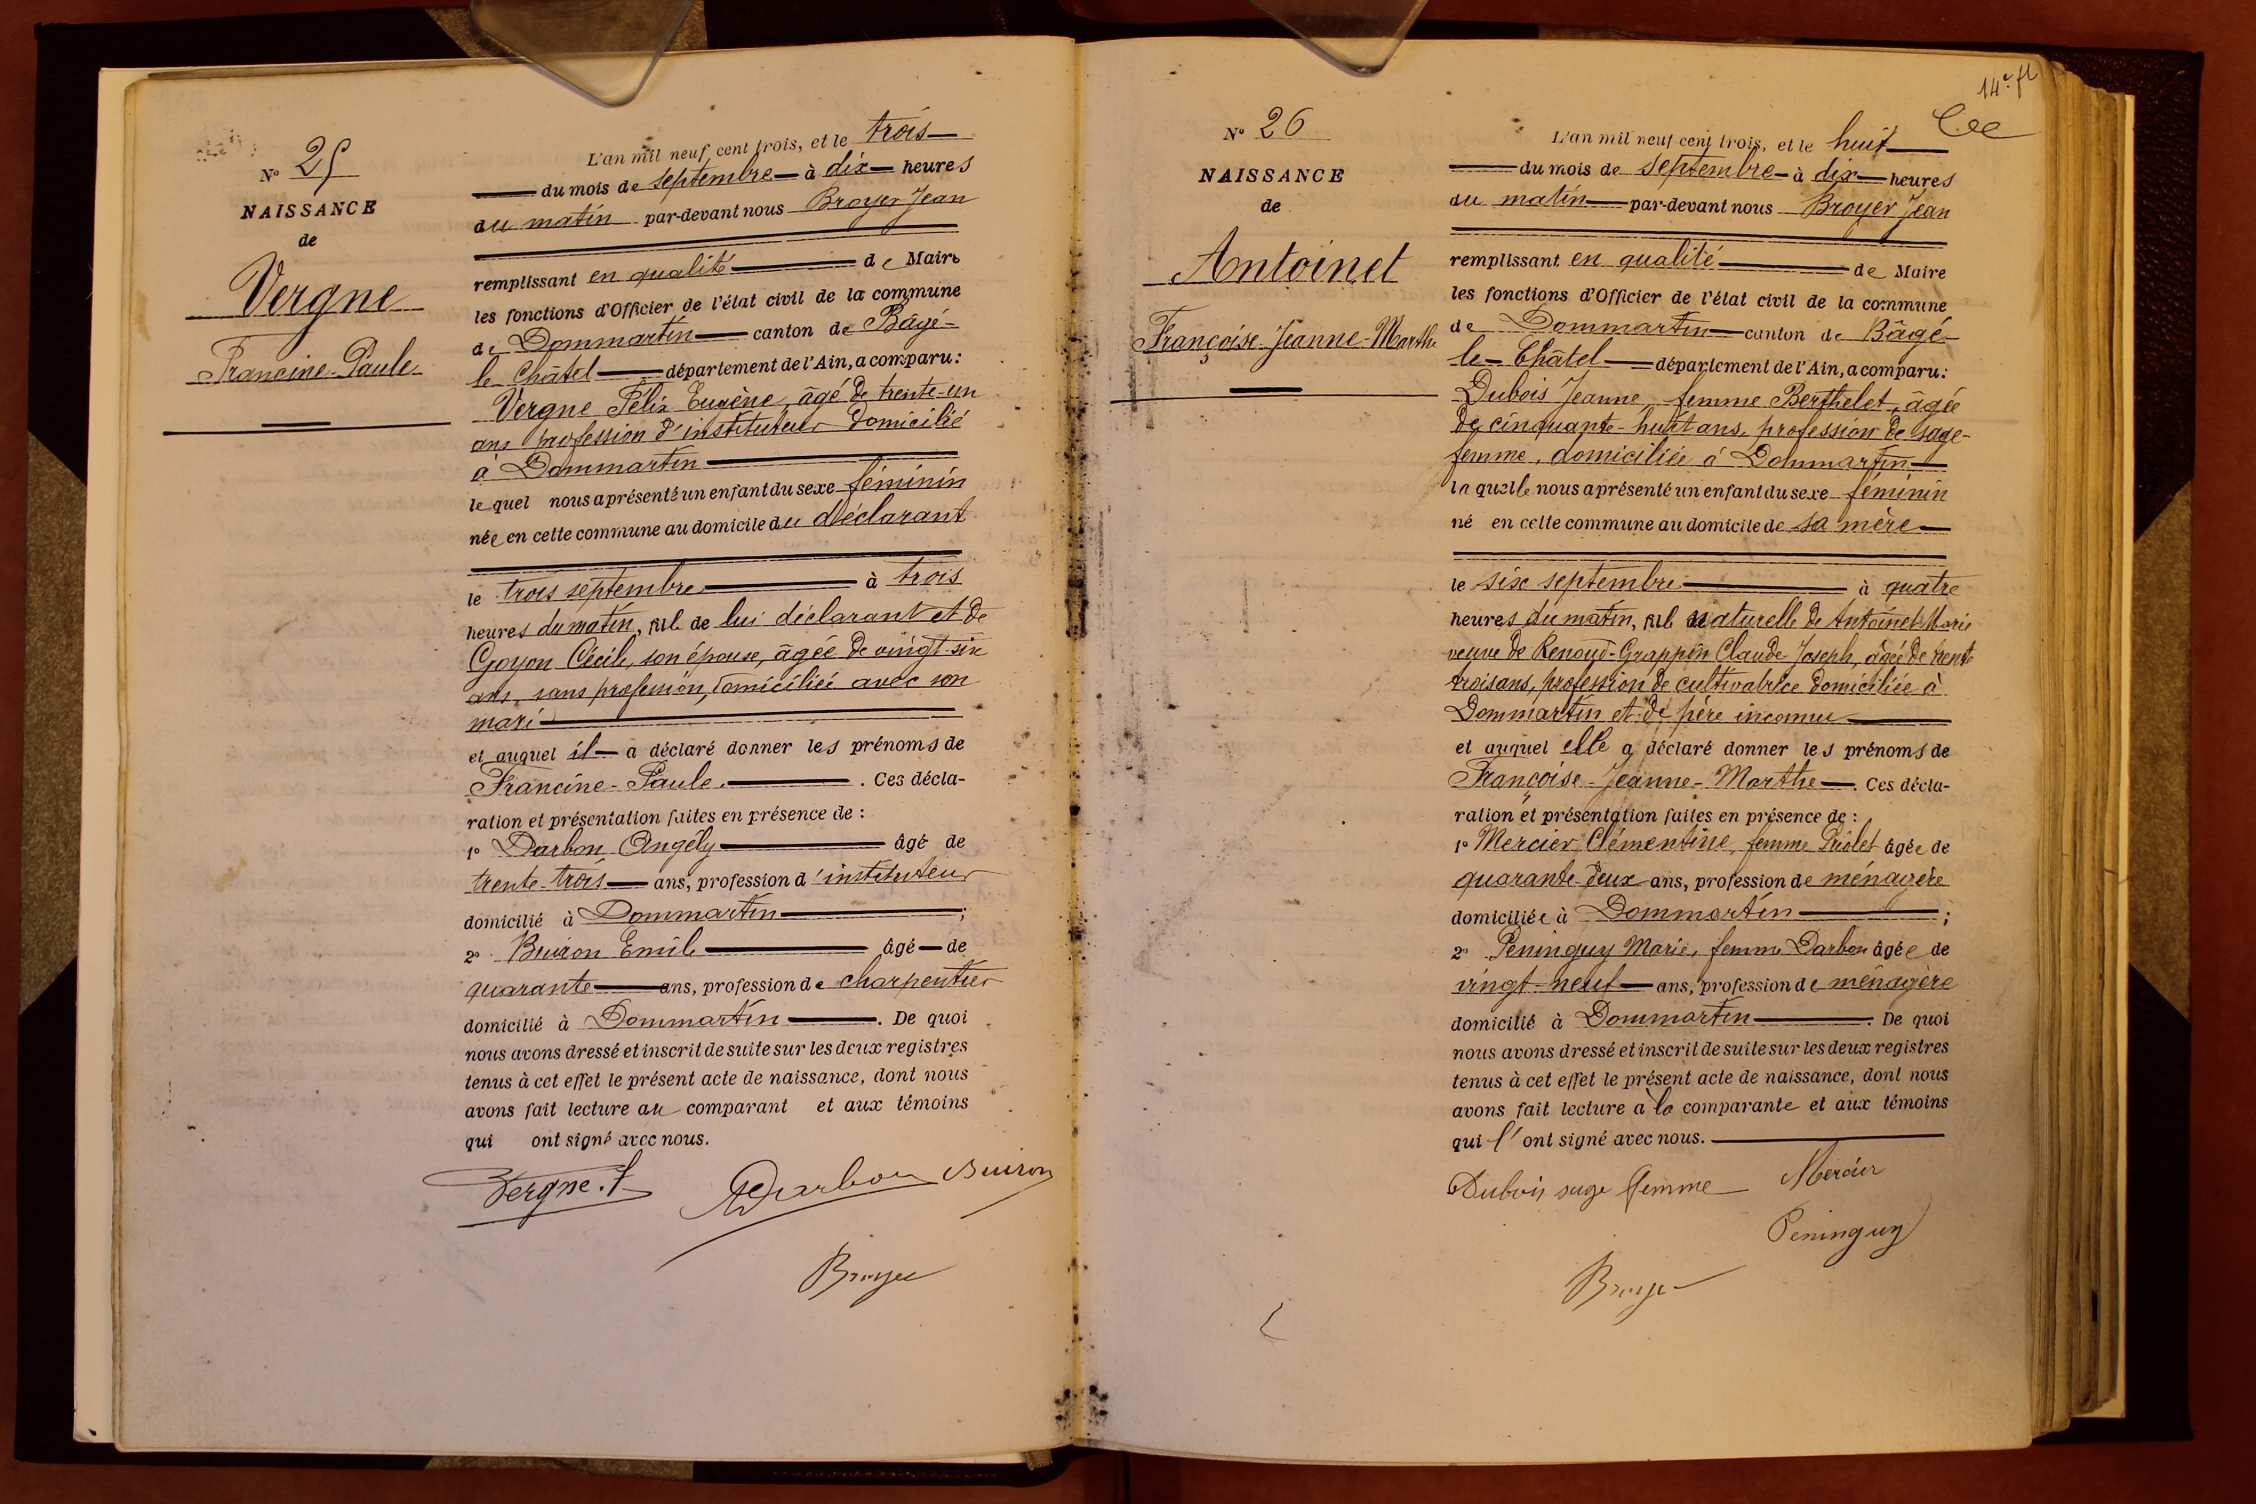 Nº 25
NAISSANCE
de
Vergne
Francine-Paule
L'an mil neuf cent trois, et le trois
du mois de septembre à dix heures
du matin par-devant nous Broyer Jean
remplissant en qualité de Maire
les fonctions d'Officier de l'état civil de la commune
de Dommartin canton de Bâgé-
le Châtel département de l'Ain, a comparu:
Vergne Félix Eugène, âgé de trente-un
ans profession d'instituteur domicilié
à Dommartin
lequel nous a présenté un enfant du sexe féminin
née en cette commune au domicile du déclarant
le trois septembre à trois
heures du matin, fille de lui déclarant et de
Goyon Cécile, son épouse, âgée de vingt-six
ans, sans profession, domiciliée avec son
mari
et auquel il a déclaré donner les prénoms de
Francine-Paule. Ces décla-
ration et présentation faites en présence de :
1º Darbon Angély âgé de
trente-trois ans, profession d'instituteur
domicilié à Dommartin ;
2º Buiron Emile âgé de
quarante ans, profession de charpentier
domicilié à Dommartin. De quoi
nous avons dressé et inscrit de suite sur les deux registres
tenus à cet effet le présent acte de naissance, dont nous
avons fait lecture au comparant et aux témoins
qui ont signé avec nous.
Vergne. f ADarbon Buiron
Broyer
14e ft
Nº 26
NAISSANCE
de
Antoinet
Françoise-Jeanne-Marthe
L'an mil neuf cent trois, et le huit
du mois de septembre à dix heures
du matin par-devant nous Broyer Jean
remplissant en qualité de Maire
les fonctions d'Officier de l'état civil de la commune
de Dommartin canton de Bâgé-
le-Châtel département de l'Ain, a comparu:
Dubois Jeanne, femme Berthelet, âgée
de cinquante-huit ans, profession de sage-
femme, domiciliée à Dommartin
laquelle nous a présenté un enfant du sexe féminin
né en cette commune au domicile de sa mère
le six septembre à quatre
heures du matin, fille naturelle de Antoinet Marie
veuve de Renoud-Grappin Claude-Joseph, âgée de trente
trois ans, profession de cultivatrice domiciliée à
Dommartin et de père inconnu
et auquel elle a déclaré donner les prénoms de
Françoise-Jeanne-Marthe. Ces décla-
ration et présentation faites en présence de :
1º Mercier Clémentine, femme Piolet âgée de
quarante-deux ans, profession de ménagère
domiciliée à Dommartin ;
2º Peninguy Marie, femme Darbon âgée de
vingt-neuf ans, profession de ménagère
domicilié à Dommartin. De quoi
nous avons dressé et inscrit de suite sur les deux registres
tenus à cet effet le présent acte de naissance, dont nous
avons fait lecture à la comparante et aux témoins
qui l'ont signé avec nous.
Dubois sage femme Mercier
Peninguy
Broyer